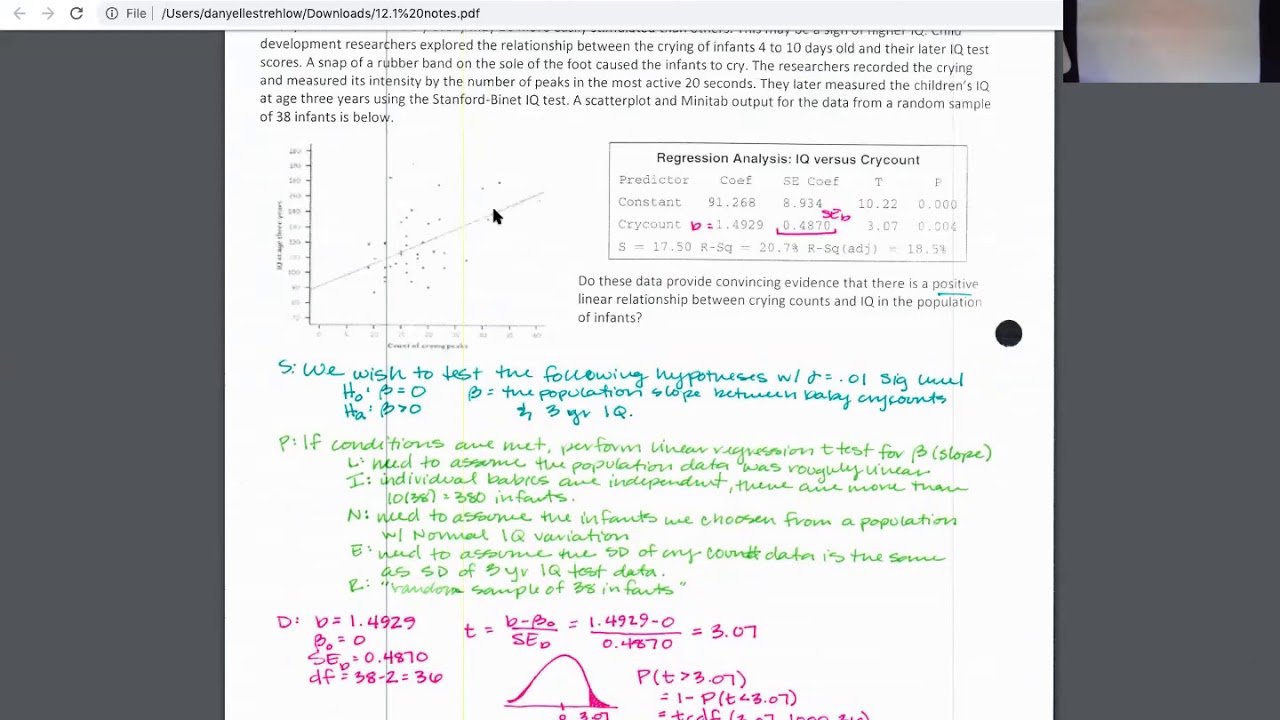 File /Users/danyellestrehlow/Downloads/12.1%20notes.pdf
development researchers explored the relationship between the crying of infants 4 to 10 days old and their later IQ test
scores. A snap of a rubber band on the sole of the foot caused the infants to cry. The researchers recorded the crying
and measured its intensity by the number of peaks in the most active 20 seconds. They later measured the children's IQ
at age three years using the Stanford-Binet IQ test. A scatterplot and Minitab output for the data from a random sample
of 38 infants is below.
IQ at age three years
Count of crying peaks
Regression Analysis: IQ versus Crycount
Predictor Coef SE Coef T P
Constant 91.268 8.934 10.22 0.000
SEb
Crycount b = 1.4929 0.4870 3.07 0.004
S = 17.50 R-Sq = 20.7% R-Sq(adj) = 18.5%
Do these data provide convincing evidence that there is a positive
linear relationship between crying counts and IQ in the population
of infants?
S: We wish to test the following hypotheses w/ α = .01 sig level
H₀: β = 0 β = the population slope between baby crycounts
Hₐ: β > 0 & 3 yr IQ.
P: If conditions are met, perform linear regression t test for β (slope)
L: need to assume the population data was roughly linear
I: individual babies are independent, there are more than
10(38) = 380 infants.
N: need to assume the infants we choosen from a population
w/ Normal IQ variation
E: need to assume the SD of cry count data is the same
as SD of 3 yr IQ test data.
R: "random sample of 38 infants"
D: b = 1.4929 t = b-β₀ / SEb = 1.4929-0 / 0.4870 = 3.07
β₀ = 0
SEb = 0.4870
df = 38-2 = 36
P(t > 3.07)
= 1 - P(t < 3.07)
0 3.07